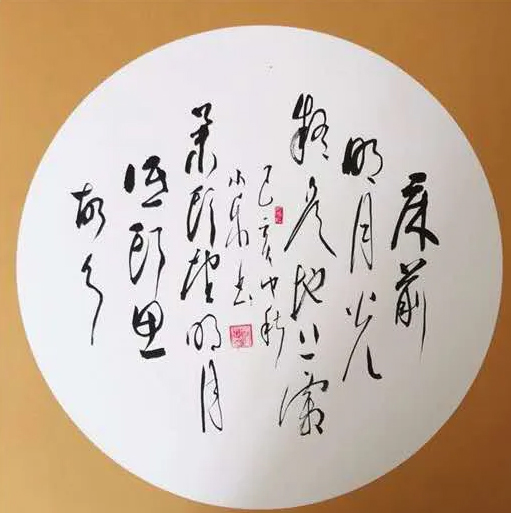 床前
明月光
疑是地上霜
己亥中秋
小书
举头望明月
低头思
故乡